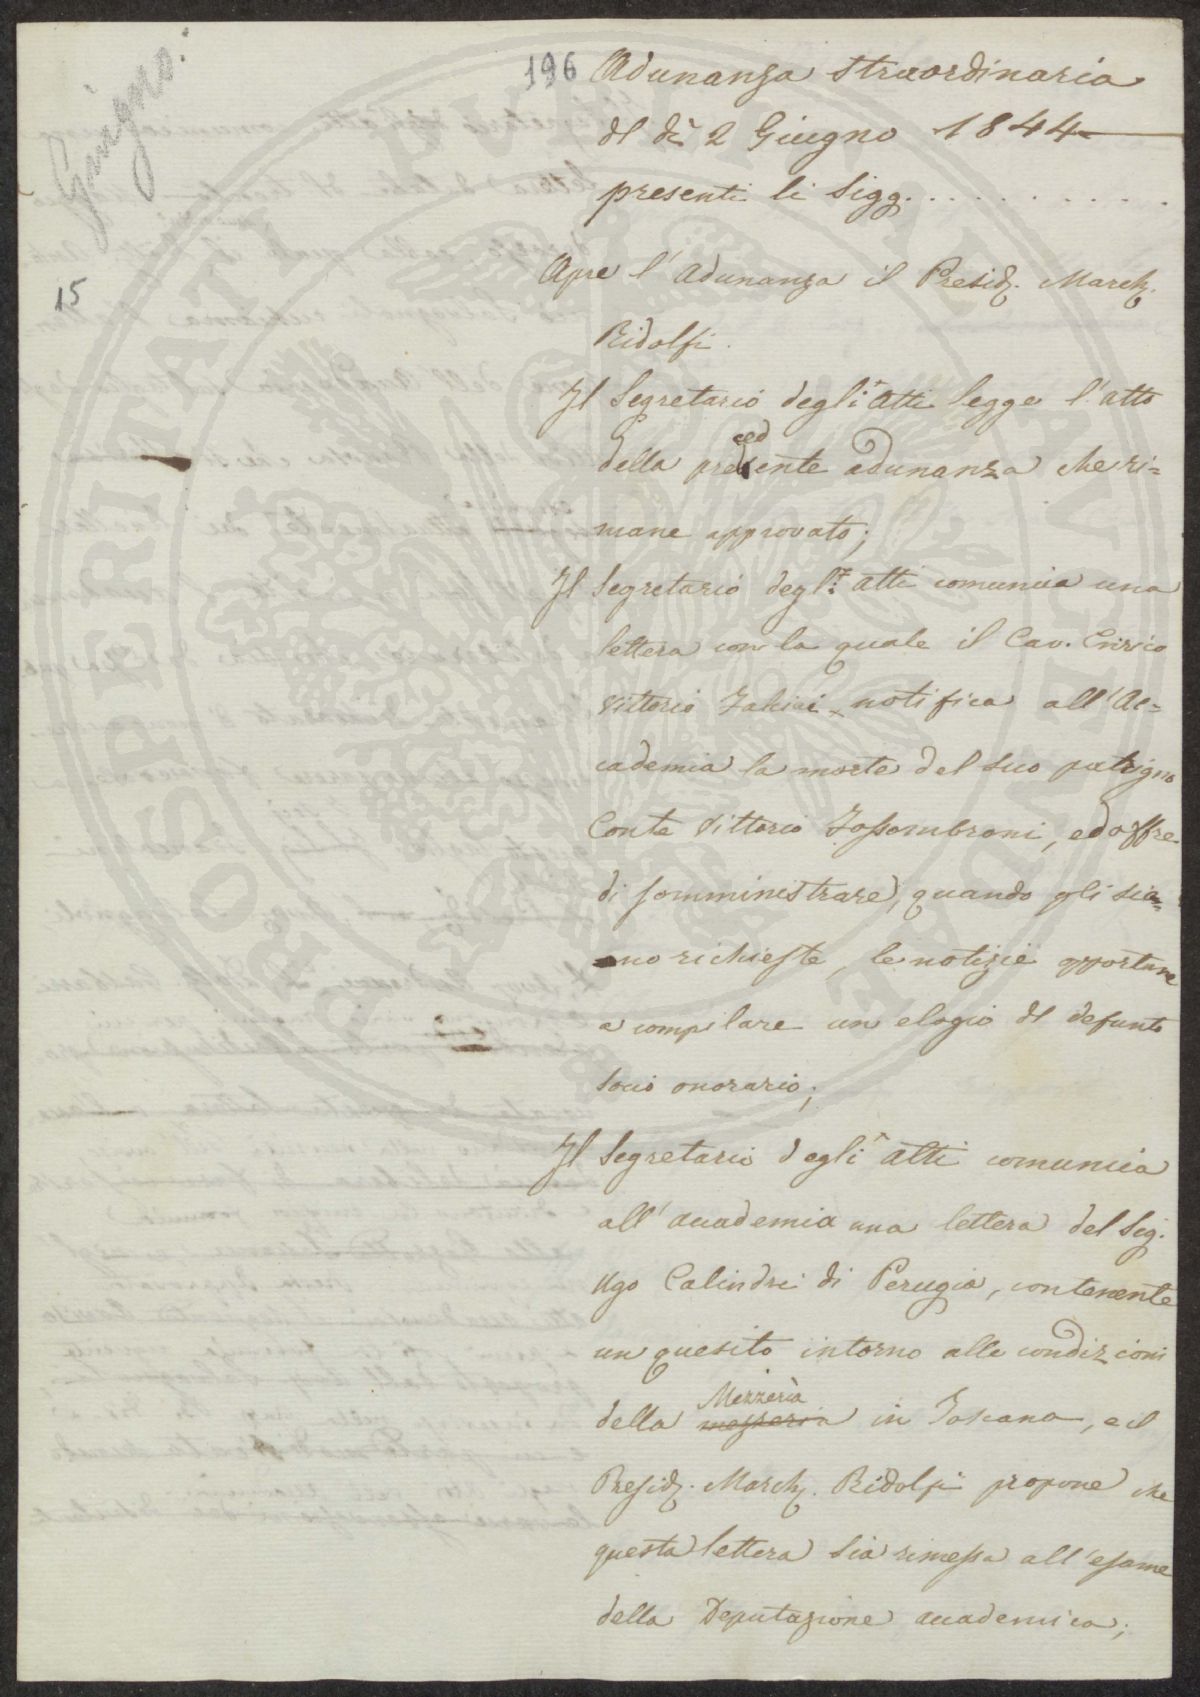 Giugno.
196
15
Adunanza straordinaria
del dì 2 Giugno 1844
presenti li Sigg. . . . . . . . . .
Apre l'Adunanza il Presid. March.
Ridolfi.
Il Segretario degli Atti legge l'atto
ced
della presente adunanza che ri=
mane approvato;
Il Segretario degli Atti comunica una
lettera con la quale il Cav. Enrico
Vittorio notifica all'Ac=
cademia la morte del suo patrigno
Conte Vittorio Fossombroni, ed offre
di somministrare, quando gli sia=
no richieste, le notizie opportune
a compilare un elogio del defunto
socio onorario;
Il Segretario degli Atti comunica
all'accademia una lettera del Sig.
Ugo Calindri di Perugia, contenente
un quesito intorno alle condizioni
Mezzeria
della mezzeria in Toscana, e il
Presid. March. Ridolfi propone che
questa lettera sia rimessa all'esame
della Deputazione accademica;
PROSPERITATI PUBLICAE AUGENDAE